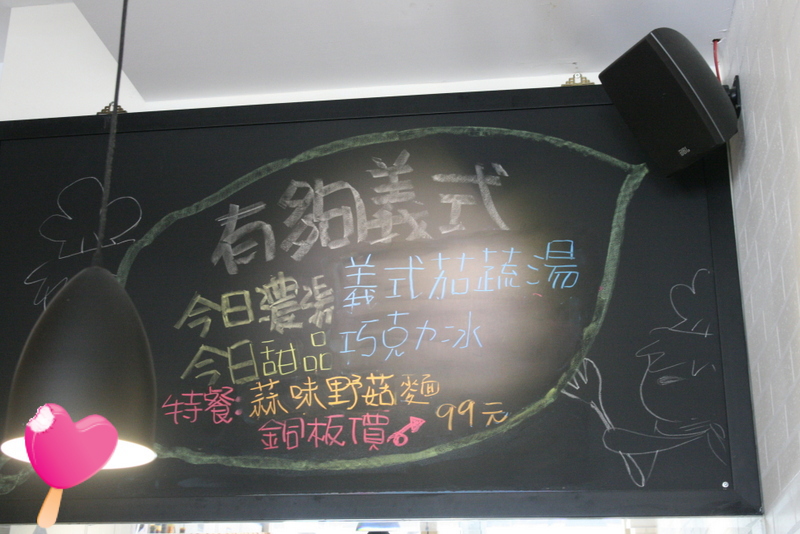 有夠義式
今日濃湯 義式茄蔬湯
今日甜品 巧克力冰
特餐:蒜味野菇麵
銅板價 99元